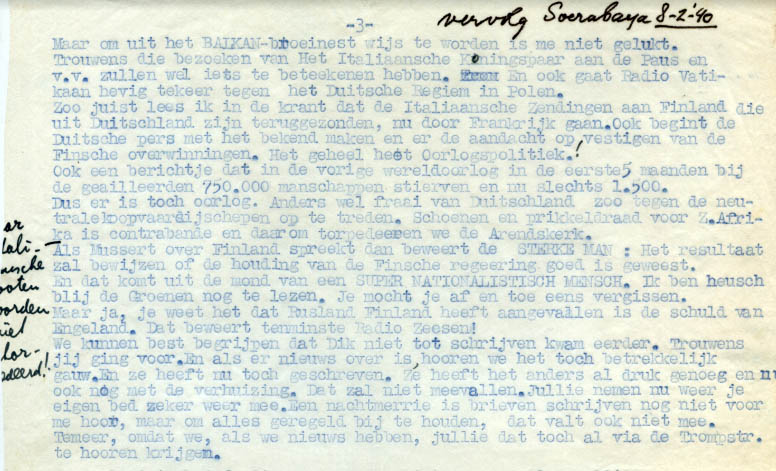 -3-
vervolg Soerabaya 8-2-'40
Maar om uit het BALKAN-broeinest wijs te worden is me niet gelukt.
Trouwens die bezoeken van Het Italiaansche Koningspaar aan de Paus en
v.v. zullen wel iets te beteekenen hebben. En ook gaat Radio Vati-
kaan hevig tekeer tegen het Duitsche Regiem in Polen.
Zoo juist lees ik in de krant dat de Italiaansche Zendingen aan Finland die
uit Duitschland zijn teruggezonden, nu door Frankrijk gaan.Ook begint de
Duitsche pers met het bekend maken en er de aandacht op vestigen van de
Finsche overwinningen. Het geheel heet Oorlogspolitiek.!
Ook een berichtje dat in de vorige wereldoorlog in de eerste5 maanden bij
de geailleerden 750.000 manschappen stierven en nu slechts 1.500.
Dus er is toch oorlog. Anders wel fraai van Duitschland zoo tegen de neu-
tralekoopvaardijschepen op te treden. Schoenen en prikkeldraad voor Z.Afri-
ka is contrabande en daarom torpedeeren we de Arendskerk.
Als Mussert over Finland spreekt dan beweert de STERKE MAN : Het resultaat
zal bewijzen of de houding van de Finsche regeering goed is geweest.
En dat komt uit de mond van een SUPER NATIONALISTISCH MENSCH. Ik ben heusch
blij de Groenen nog te lezen. Je mocht je af en toe eens vergissen.
Maar ja, je weet het dat Rusland Finland heeft aangevallen is de schuld van
Engeland. Dat beweert tenminste Radio Zeesen!
We kunnen best begrijpen dat Dik niet tot schrijven kwam eerder. Trouwens
jij ging voor.En als er nieuws over is,hooren we het toch betrekkelijk
gauw.En ze heeft nu toch geschreven. Ze heeft het anders al druk genoeg en nu
ook nog met de verhuizing. Dat zal niet meevallen.Jullie nemen nu weer je
eigen bed zeker weer mee.Een nachtmerrie is brieven schrijven nog niet voor
me hoor, maar om alles geregeld bij te houden, dat valt ook niet mee.
Temeer, omdat we, als we nieuws hebben, jullie dat toch al via de Trompstr.
te hooren krijgen.
ar
tali-
ansche
ooten
orden
iet
tor-
deerd!